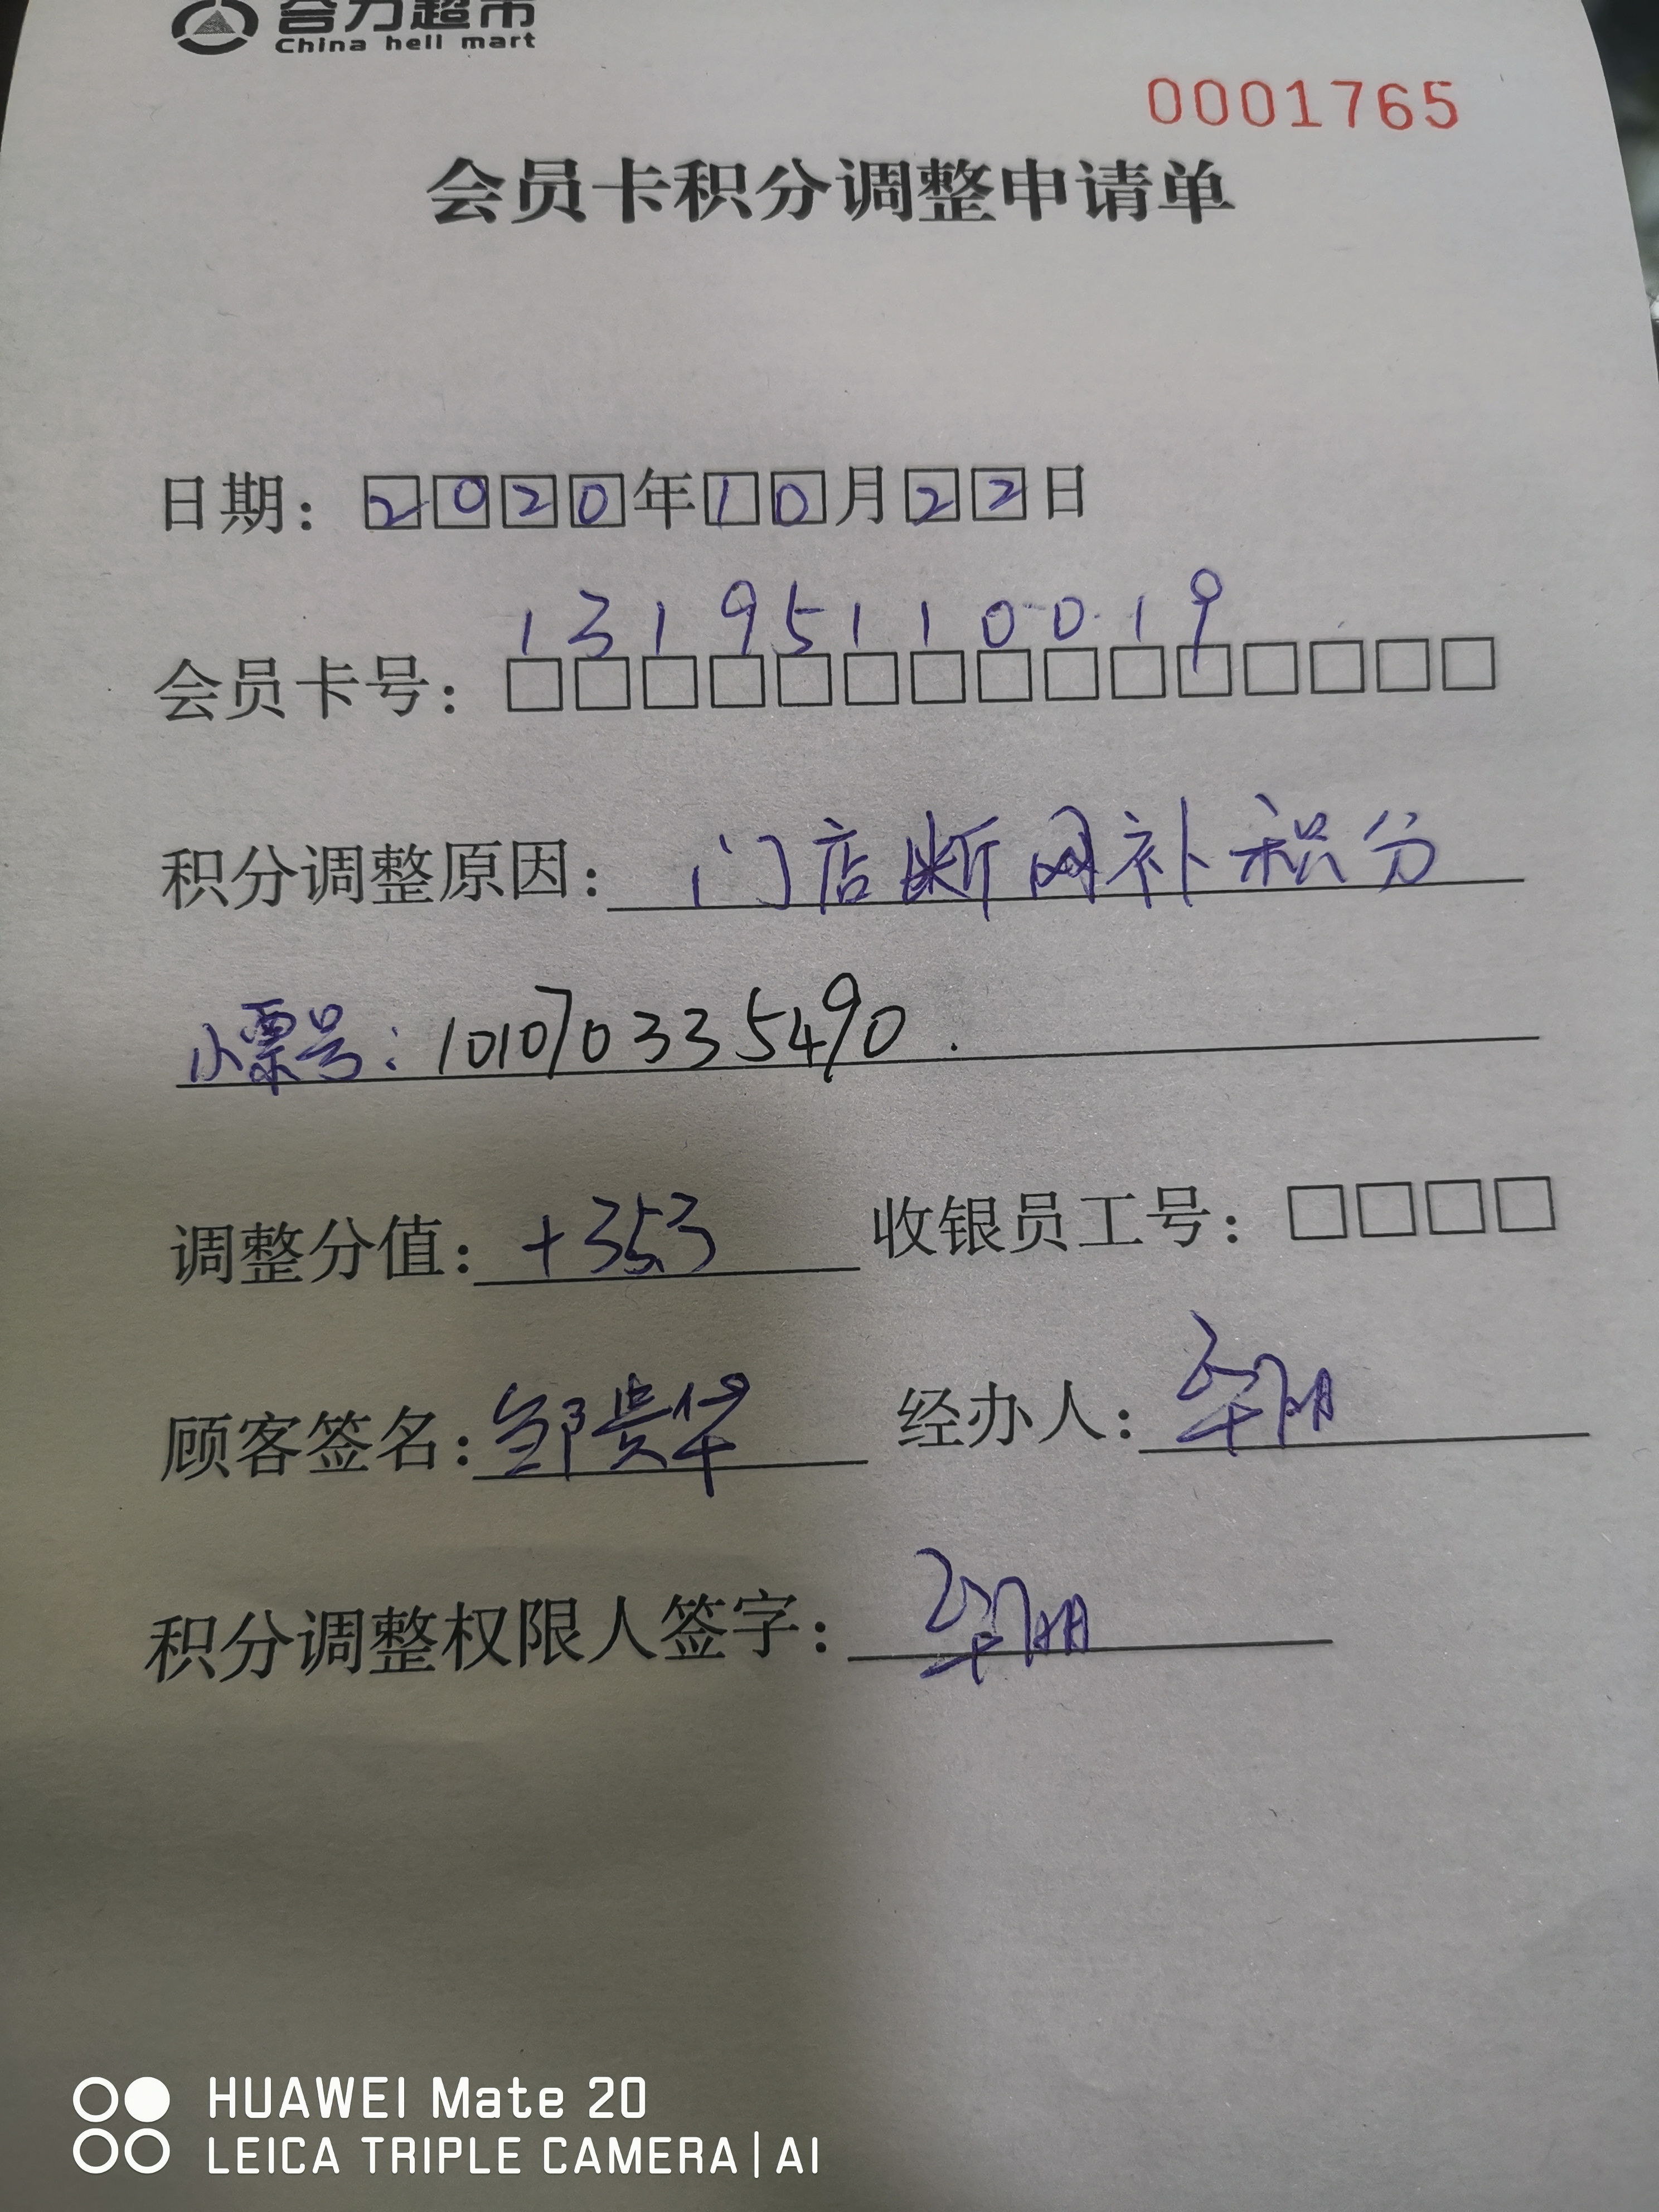 合力超市
China heli mart
0001765
会员卡积分调整申请单
日期：2020年10月22日
13195110019
会员卡号：
积分调整原因：门店断网补积分
小票号：101070335490.
调整分值：+353 收银员工号：
顾客签名：邹贵华 经办人：
积分调整权限人签字：
HUAWEI Mate 20
LEICA TRIPLE CAMERA|AI